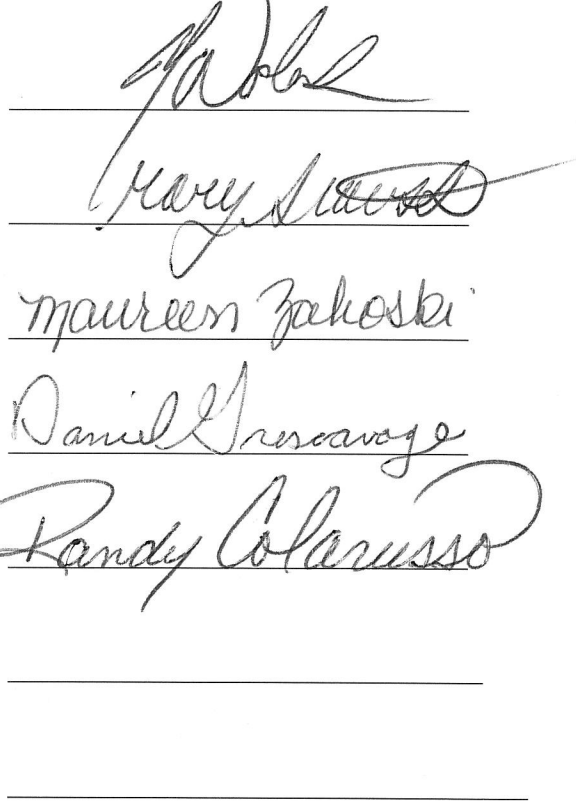 Mary
Maureen Zakoski
Daniel Grescavage
Randy Colarusso